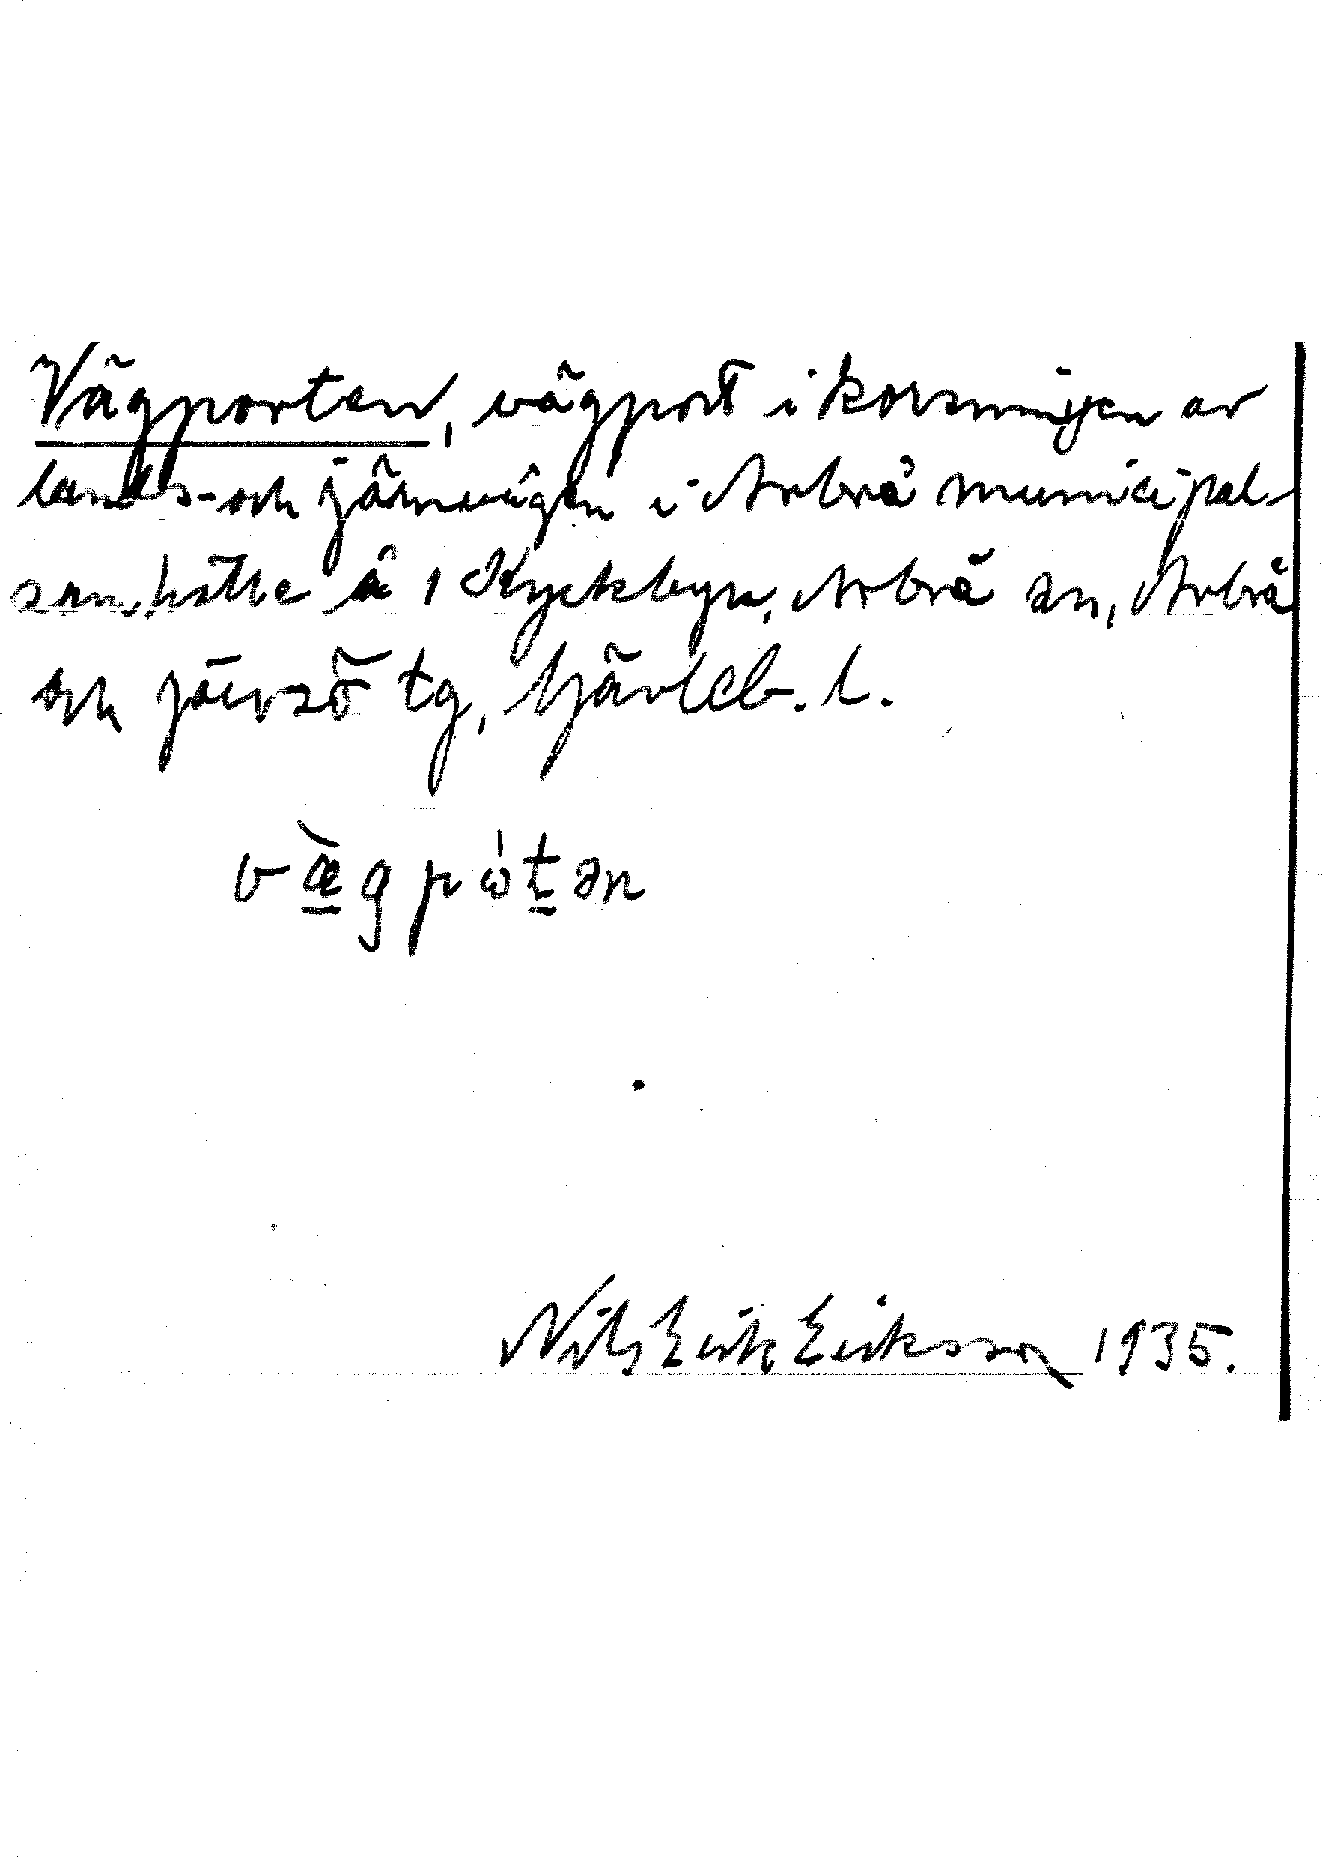 Vägporten, vägport i korsningen av
lands- och järnvägen i Arbrå municipal-
samhälle å 1 Kyckbyn, Arbrå sn, Arbrå
och Järvsö tg, Gävleb. l.
vægpωtən
Nils Erik Eriksson 1935.